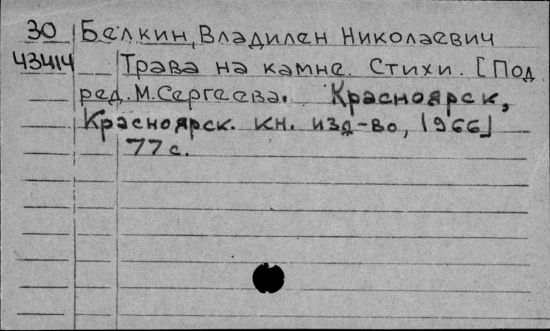 30 Белкин, Владилен Николаевич
43414 Трава на камне. Стихи. [Под
ред. М. Сергеева. Красноярск,
Красноярск. кн. изд-во, 1966]
77 с.